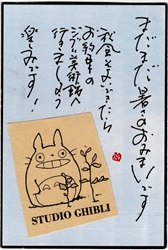 まだまだ暑さのおみまいです
秋風そよいできたら
お約束の
ジブリ美術館へ
行きましょう
楽しみです!
STUDIO GHIBLI